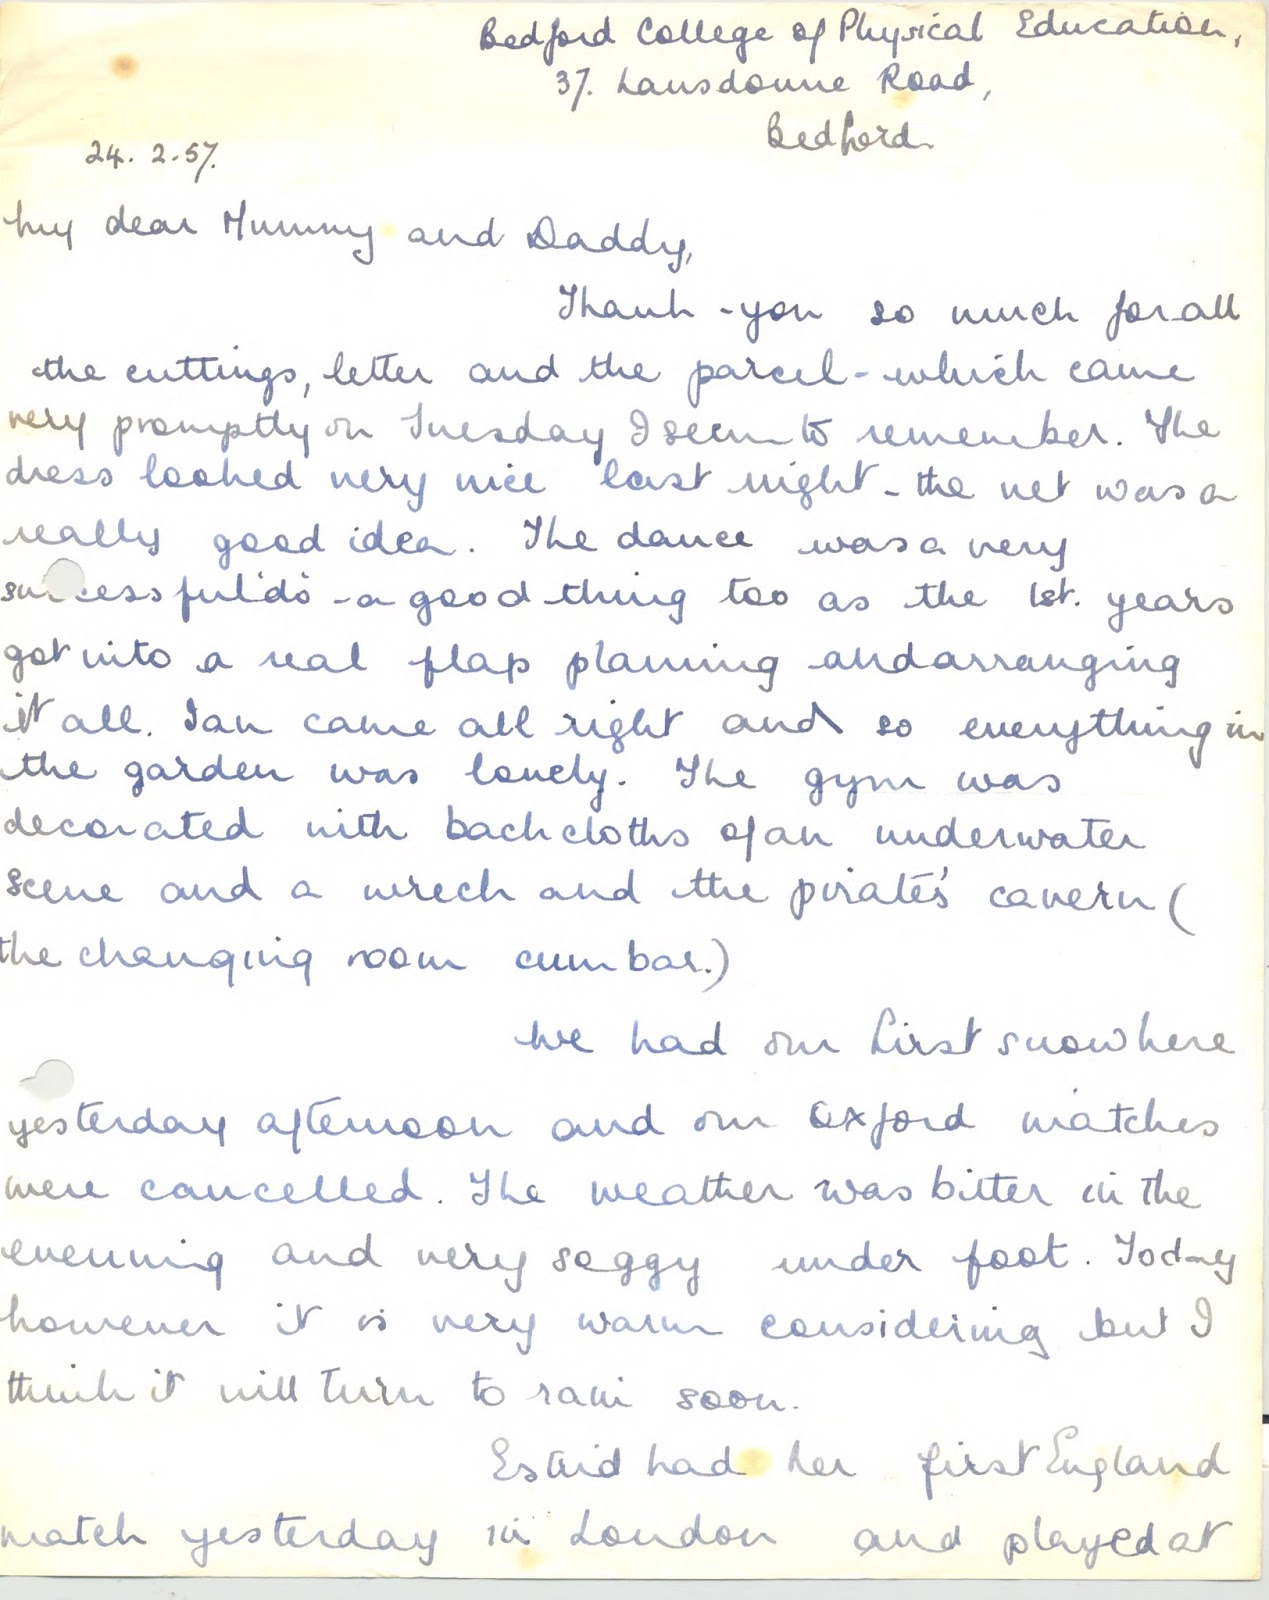 Bedford College of Physical Education,
37. Lansdowne Road,
Bedford.
24. 2. 57.
My dear Mummy and Daddy,
Thank-you so much for all
the cuttings, letter and the parcel - which came
very promptly on Tuesday I seem to remember. The
dress looked very nice last night - the net was a
really good idea. The dance was a very
successful 'do' - a good thing too as the 1st. years
got into a real flap planning and arranging
it all. Ian came all right and so everything in
the garden was lovely. The gym was
decorated with backcloths of an underwater
scene and a wreck and the pirate's cavern (
the changing room cum bar.)
We had our first snow here
yesterday afternoon and our Oxford matches
were cancelled. The weather was bitter in the
evening and very soggy under foot. Today
however it is very warm considering but I
think it will turn to rain soon.
Estrid had her first England
match yesterday in London and played at